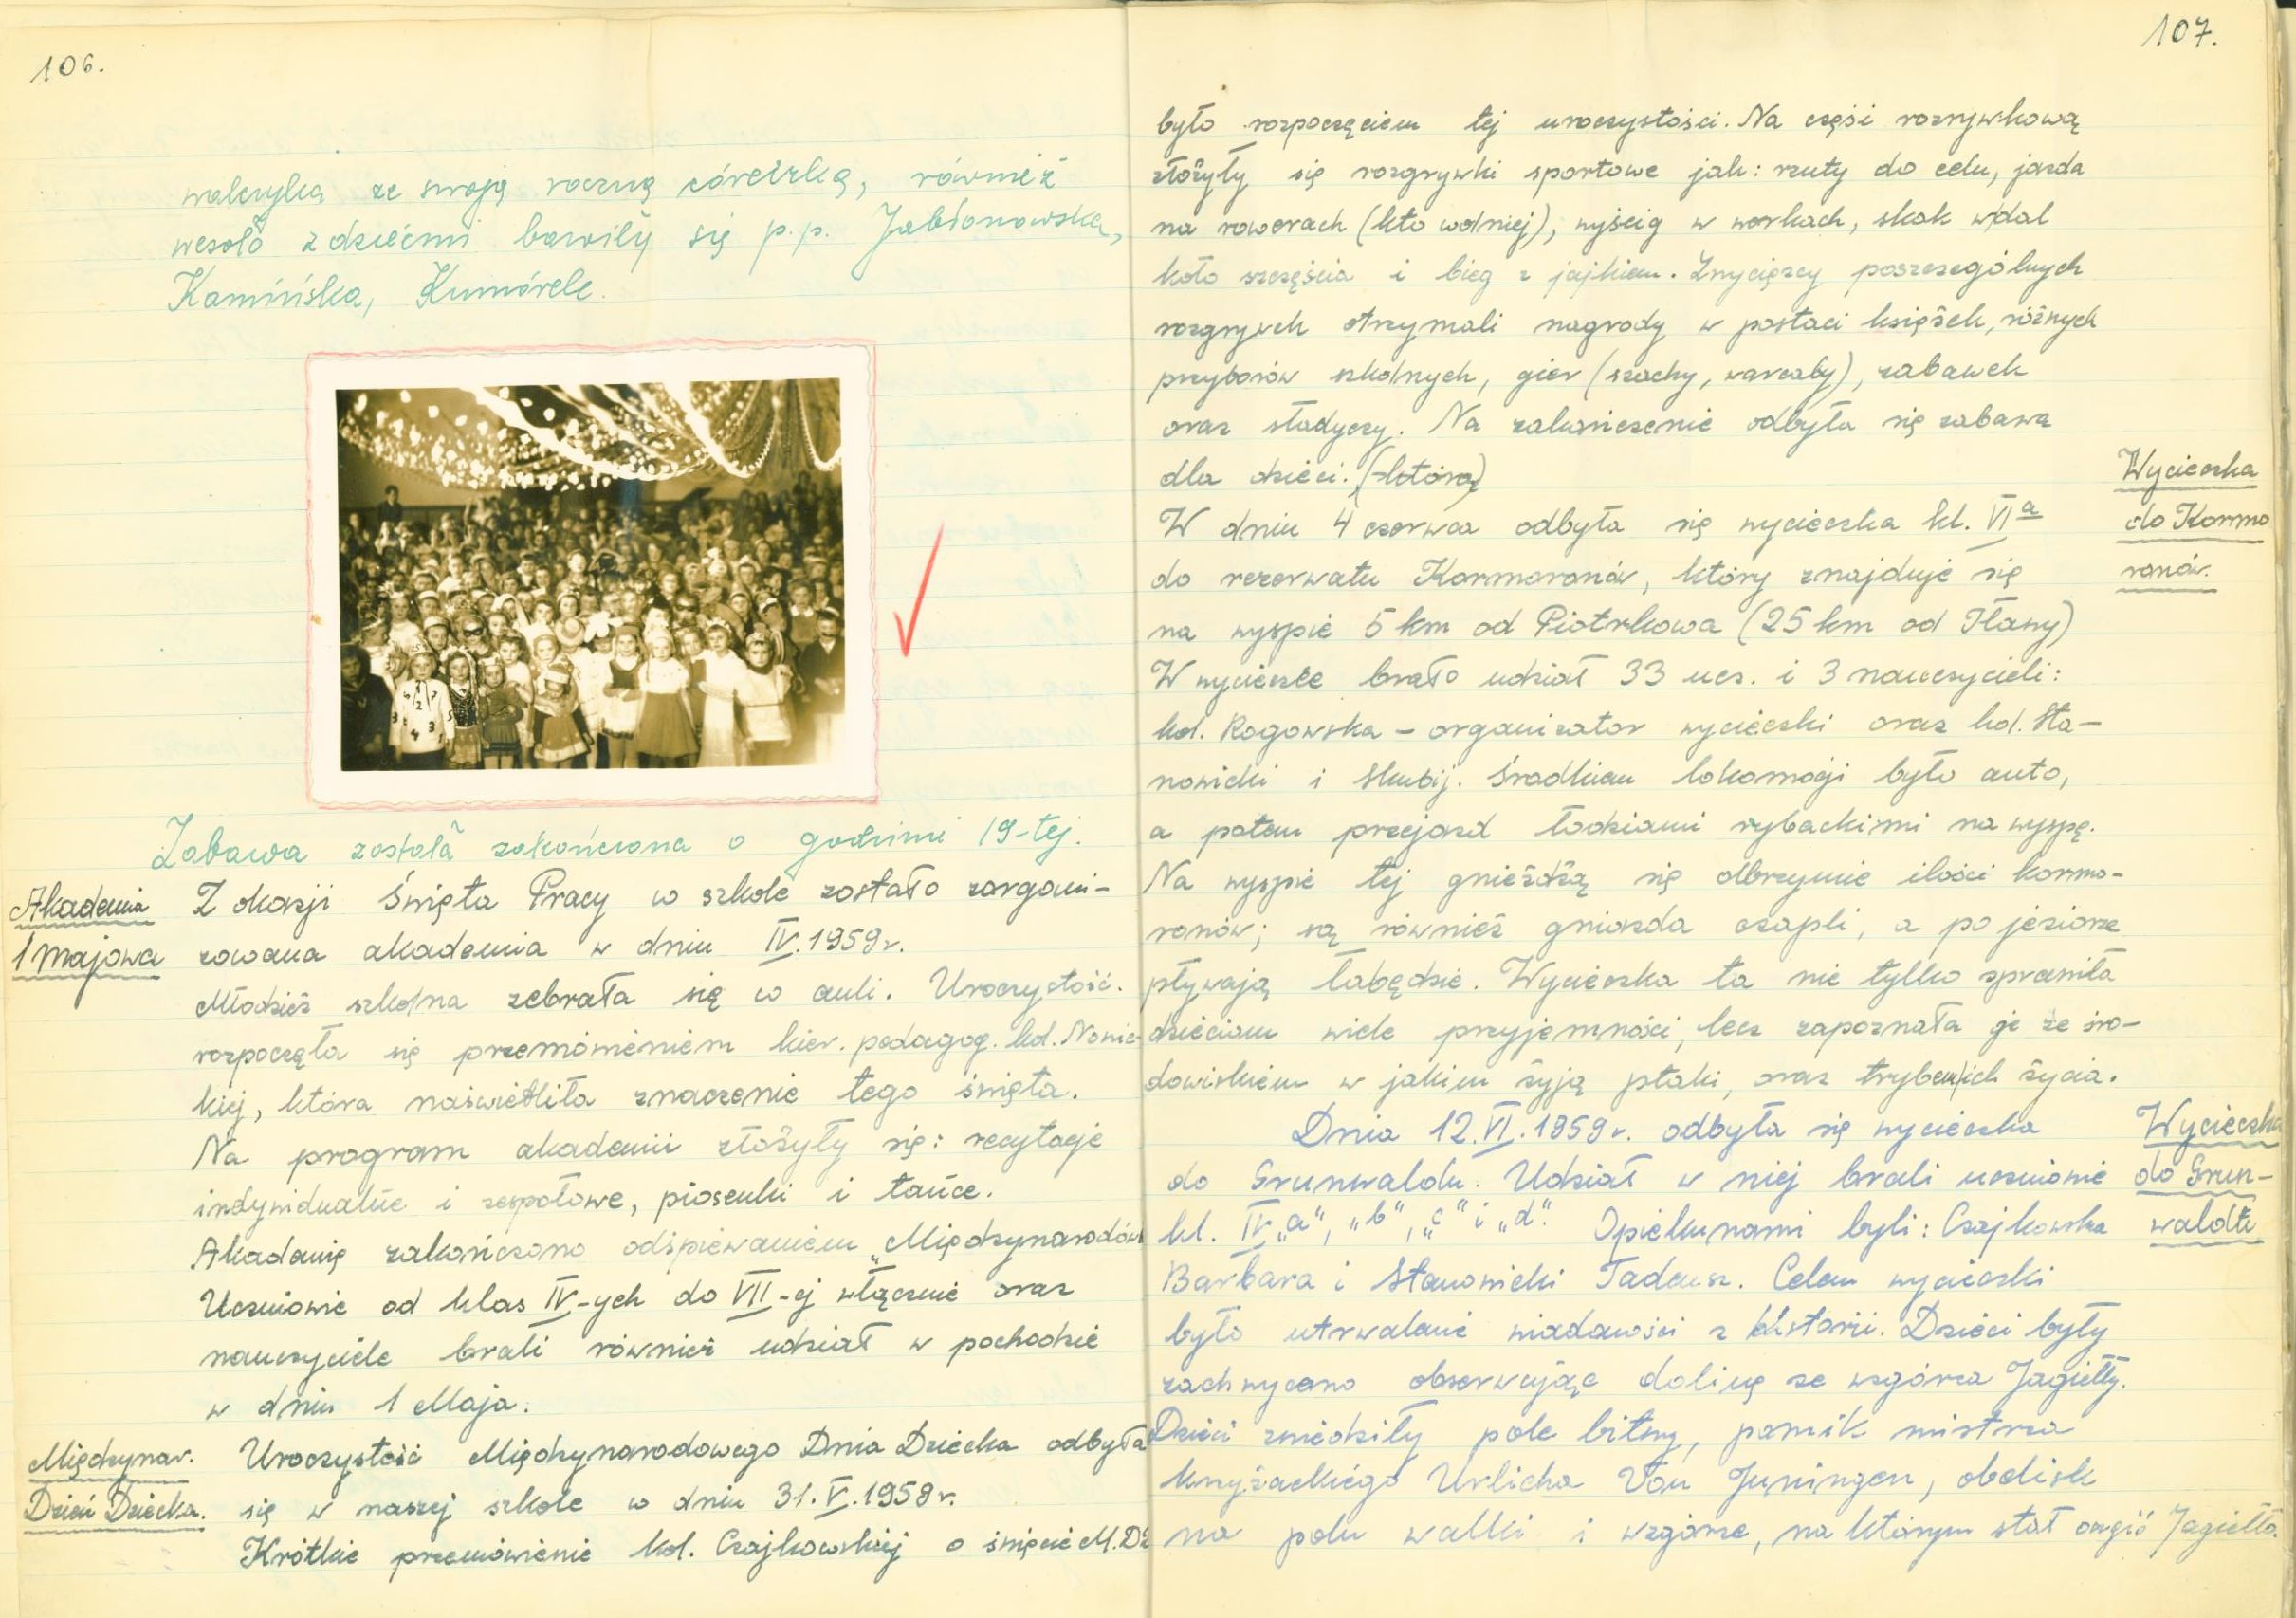 106.
walczyka ze swoją roczną córeczką, również
wesoło z dziećmi bawiły się p.p. Jabłonowska,
Kamińska, Kumórek.
Zabawa została zakończona o godzinie 19-tej.
Akademia
1 Majowa
Z okazji Święta Pracy w szkole zostało zorgani-
zowana akademia w dniu IV.1959r.
Młodzież szkolna zebrała się w auli. Uroczystość.
rozpoczęła się przemówieniem kier. pedagog. kol. Nowic-
kiej, która naświetliła znaczenie tego święta.
Na program akademii złożyły się: recytacje
indywidualne i zespołowe, piosenki i tańce.
Akademię zakończono odśpiewaniem „Międzynarodówk
Uczniowie od klas IV-ych do VII-ej włącznie oraz
nauczyciele brali również udział w pochodzie
w dniu 1 Maja.
Międzynar.
Dzień Dziecka.
Uroczystość Międzynarodowego Dnia Dziecka odbyła
się w naszej szkole w dniu 31.V.1959r.
Krótkie przemówienie kol. Czajkowskiej o święcie M.DZ
107.
było rozpoczęciem tej uroczystości. Na część rozrywkową
złożyły się rozgrywki sportowe jak: rzuty do celu, jazda
na rowerach (kto wolniej), wyścig w workach, skok w dal
koło szczęścia i bieg z jajkiem. Zwycięzcy poszczególnych
rozgrywek otrzymali nagrody w postaci książek, różnych
przyborów szkolnych, gier (szachy, warcaby), zabawek
oraz słodyczy. Na zakończenie odbyła się zabawa
dla dzieci. (którą)
Wycieczka
do Kormo
ranów.
W dniu 4 czerwca odbyła się wycieczka kl. VIa
do rezerwatu Kormoranów, który znajduje się
na wyspie 5 km od Piotrkowa (25 km od Iławy)
W wycieczce brało udział 33 ucz. i 3 nauczycieli:
kol. Rogowska – organizator wycieczki oraz kol. Sta-
nowicki i Skubij. Środkiem lokomocji było auto,
a potem przejazd łodziami rybackimi na wyspę.
Na wyspie tej gnieżdżą się olbrzymie ilości kormo-
ranów; są również gniazda czapli, a po jeziorze
pływają łabędzie. Wycieczka ta nie tylko sprawiła
dzieciom wiele przyjemności, lecz zapoznała je ze śro-
dowiskiem w jakim żyją ptaki, oraz trybem ich życia.
Wycieczka
do Grun-
waldu
Dnia 12.VI.1959r. odbyła się wycieczka
do Grunwaldu. Udział w niej brali uczniowie
kl. IV „a”, „b”, „c” i „d”. Opiekunami byli: Czajkowska
Barbara i Stanowicki Tadeusz. Celem wycieczki
było utrwalenie wiadomości z historii. Dzieci były
zachwycono obserwując dolinę ze wzgórza Jagiełły.
Dzieci zwiedziły pole bitwy, pomik mistrza
krzyżackiego Urlicha Von Juningen, obelisk
na polu walki i wzgórze, na którym stał ongiś Jagiełło.